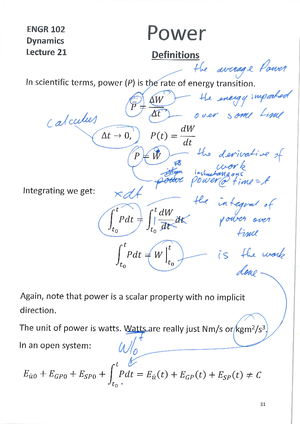 ENGR 102
Dynamics
Lecture 21
Power
Definitions
the average Power
In scientific terms, power (P) is the rate of energy transition.
P = ΔW/Δt
the energy imparted
over some time
calculus
Δt → 0, P(t) = dW/dt
P = Ẇ
the derivative of
work
instantaneous
power @ time = t
Integrating we get:
×dt
∫_{t₀}^{t} Pdt = ∫_{t₀}^{t} dW/dt dt
the integral of
power over
time
∫_{t₀}^{t} Pdt = W|_{t₀}^{t}
is the work
done
Again, note that power is a scalar property with no implicit
direction.
The unit of power is watts. Watts are really just Nm/s or kgm²/s³.
In an open system:
W|₀ᵗ
E_{ü0} + E_{GP0} + E_{SP0} + ∫_{t₀}^{t} Pdt = E_{ü}(t) + E_{GP}(t) + E_{SP}(t) ≠ C
21